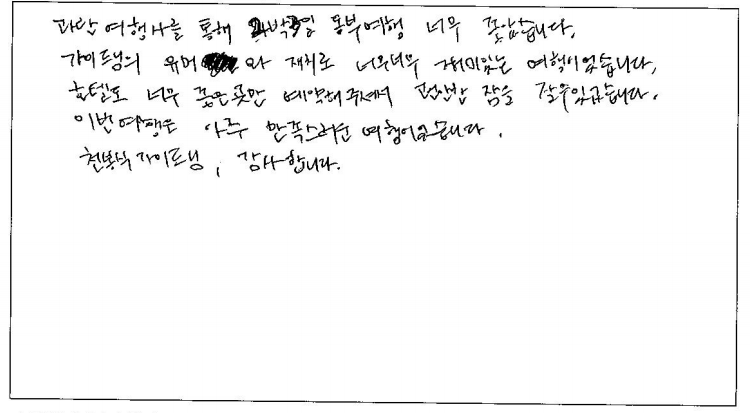 관광 여행사를 통해 2박3일 동부여행 너무 좋았습니다.
가이드님의 유머 와 재치로 너무너무 재미있는 여행이었습니다.
호텔도 너무 좋은곳만 예약해주셔서 편안한 잠을 잘수있었습니다.
이번여행은 아주 만족스러운 여행이었습니다.
천봉식 가이드님, 감사합니다.